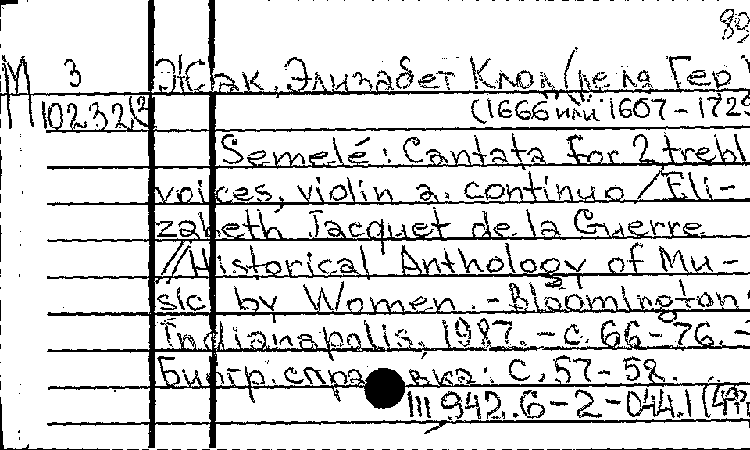 89
М 3 Жак, Элизабет Клод (де ла Гер
10232/2 (1666 или 1667-1729
Semelé: Cantata for 2 trebl
voices, violin a. continuo / Eli-
zabeth Jacquet de la Guerre
// Historical Anthology of Mu-
sic by Women. - Bloomington;
Indianapolis, 1987. - С. 66-76. -
Биогр. справка: С. 57-58.
Ш942.6-2-044.1(4